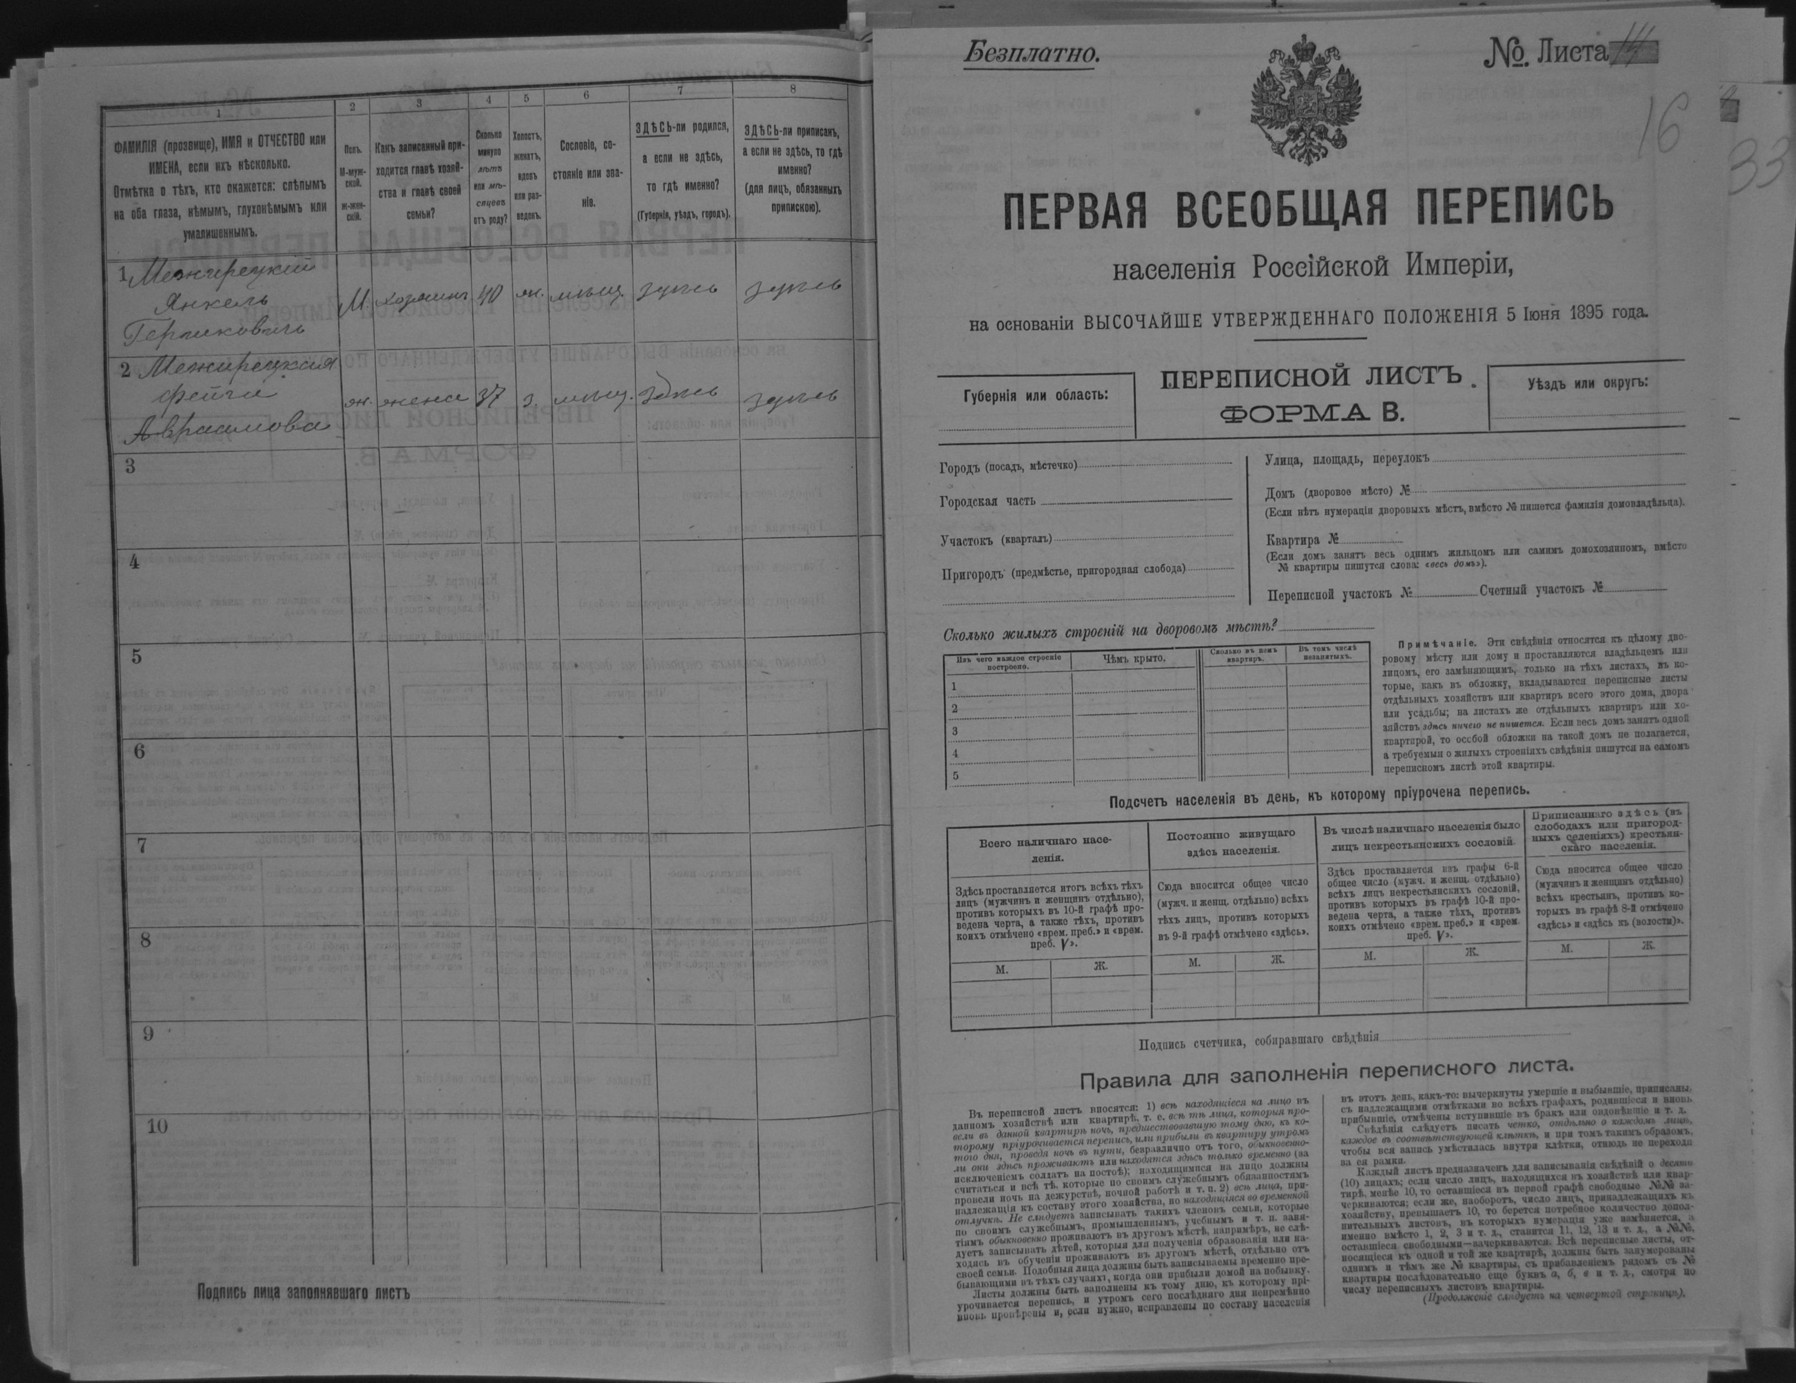 1
2
3
4
5
6
7
8
ФАМИЛІЯ (прозвище), ИМЯ и ОТЧЕСТВО или
ИМЕНА, если ихъ нѣсколько.
Отмѣтка о тѣхъ, кто окажется: слѣпымъ
на оба глаза, нѣмымъ, глухонѣмымъ или
умалишеннымъ.
Полъ.
М-муж-
ской.
Ж-жен-
скій.
Какъ записанный при-
ходится главѣ хозяй-
ства и главѣ своей
семьи?
Сколько
минуло
лѣтъ
или мѣ-
сяцевъ
отъ роду?
Холостъ,
женатъ,
вдовъ
или раз-
веденъ.
Сословіе, со-
стояніе или зва-
ніе.
ЗДѢСЬ-ли родился,
а если не здѣсь,
то гдѣ именно?
(Губернія, уѣздъ, городъ).
ЗДѢСЬ-ли приписанъ,
а если не здѣсь, то гдѣ
именно?
(для лицъ, обязанныхъ
припискою).
1 Межирецкій
Янкель
Гершковичъ
М хозяинъ 40 ж. мѣщ. здѣсь здѣсь
2 Межирецкая
Фейга
Авраамова
ж. жена 37 з. мѣщ. здѣсь здѣсь
3
4
5
6
7
8
9
10
Подпись лица заполнявшаго листъ
Безплатно.
№ Листа 14
16
33
ПЕРВАЯ ВСЕОБЩАЯ ПЕРЕПИСЬ
населенія Россійской Имперіи,
на основаніи ВЫСОЧАЙШЕ УТВЕРЖДЕННАГО ПОЛОЖЕНІЯ 5 Іюня 1895 года.
Губернія или область:
ПЕРЕПИСНОЙ ЛИСТЪ.
ФОРМА В.
Уѣздъ или округъ:
Городъ (посадъ, мѣстечко)
Городская часть
Участокъ (кварталъ)
Пригородъ (предмѣстье, пригородная слобода)
Улица, площадь, переулокъ
Домъ (дворовое мѣсто) №
(Если нѣтъ нумераціи дворовыхъ мѣстъ, вмѣсто № пишется фамилія домовладѣльца).
Квартира №
(Если домъ занятъ весь однимъ жильцомъ или самимъ домохозяиномъ, вмѣсто
№ квартиры пишутся слова: «весь домъ»).
Переписной участокъ № Счетный участокъ №
Сколько жилыхъ строеній на дворовомъ мѣстѣ?
Изъ чего каждое строеніе
построено.
Чѣмъ крыто.
Сколько въ немъ
квартиръ.
Въ томъ числѣ
незанятыхъ.
1
2
3
4
5
Примѣчаніе. Эти свѣдѣнія относятся къ цѣлому дво-
ровому мѣсту или дому и проставляются владѣльцемъ или
лицомъ, его замѣняющимъ, только на тѣхъ листахъ, въ ко-
торые, какъ въ обложку, вкладываются переписные листы
отдѣльныхъ хозяйствъ или квартиръ всего этого дома, двора
или усадьбы; на листахъ же отдѣльныхъ квартиръ или хо-
зяйствъ здѣсь ничего не пишется. Если весь домъ занятъ одной
квартирой, то особой обложки на такой домъ не полагается,
а требуемыя о жилыхъ строеніяхъ свѣдѣнія пишутся на самомъ
переписномъ листѣ этой квартиры.
Подсчетъ населенія въ день, къ которому пріурочена перепись.
Всего наличнаго насе-
ленія.
Здѣсь проставляется итогъ всѣхъ тѣхъ
лицъ (мужчинъ и женщинъ отдѣльно),
противъ которыхъ въ 10-й графѣ про-
ведена черта, а также тѣхъ, противъ
коихъ отмѣчено «врем. преб.» и «врем.
преб. V».
М. Ж.
Постоянно живущаго
здѣсь населенія.
Сюда вносится общее число
(мужч. и женщ. отдѣльно) всѣхъ
тѣхъ лицъ, противъ которыхъ
въ 9-й графѣ отмѣчено «здѣсь».
М. Ж.
Въ числѣ наличнаго населенія было
лицъ некрестьянскихъ сословій.
Здѣсь проставляется изъ графы 6-й
общее число (мужч. и женщ. отдѣльно)
всѣхъ лицъ некрестьянскихъ сословій,
противъ которыхъ въ графѣ 10-й про-
ведена черта, а также тѣхъ, противъ
коихъ отмѣчено «врем. преб.» и «врем.
преб. V».
М. Ж.
Приписаннаго здѣсь (въ
слободахъ или пригород-
ныхъ селеніяхъ) крестьян-
скаго населенія.
Сюда вносится общее число
(мужчинъ и женщинъ отдѣльно)
всѣхъ крестьянъ, противъ ко-
торыхъ въ графѣ 8-й отмѣчено
«здѣсь» и «здѣсь къ (волости)».
М. Ж.
Подпись счетчика, собиравшаго свѣдѣнія
Правила для заполненія переписного листа.
Въ переписной листъ вносятся: 1) всѣ находящіеся на лицо въ
данномъ хозяйствѣ или квартирѣ, т. е. всѣ тѣ лица, которыя про-
вели въ данной квартирѣ ночь, предшествовавшую тому дню, къ ко-
торому пріурочивается перепись, или прибыли въ квартиру утромъ
того дня, проведя ночь въ пути, безразлично отъ того, обыкновенно-
ли они здѣсь проживаютъ или находятся здѣсь только временно (за
исключеніемъ солдатъ на постоѣ); находящимися на лицо должны
считаться и всѣ тѣ, которые по своимъ служебнымъ обязанностямъ
провели ночь на дежурствѣ, ночной работѣ и т. п. 2) всѣ лица, при-
надлежащія къ составу этого хозяйства, но находящіяся во временной
отлучкѣ. Не слѣдуетъ записывать такихъ членовъ семьи, которые
по своимъ служебнымъ, промышленнымъ, учебнымъ и т. п. заня-
тіямъ обыкновенно проживаютъ въ другомъ мѣстѣ, напримѣръ, не слѣ-
дуетъ записывать дѣтей, которыя для полученія образованія или на-
ходясь въ обученіи проживаютъ въ другомъ мѣстѣ, отдѣльно отъ
своей семьи. Подобныя лица должны быть записываемы временно пре-
бывающими въ тѣхъ случаяхъ, когда они прибыли домой на побывку.
Листы должны быть заполнены къ тому дню, къ которому прі-
урочивается перепись, и утромъ сего послѣдняго дня непремѣнно
вновь провѣрены и, если нужно, исправлены по составу населенія
въ этотъ день, какъ-то: вычеркнуты умершіе и выбывшіе, приписаны,
съ надлежащими отмѣтками во всѣхъ графахъ, родившіеся и вновь
прибывшіе, отмѣчены вступившіе въ бракъ или овдовѣвшіе и т. д.
Свѣдѣнія слѣдуетъ писать четко, отдѣльно о каждомъ лицѣ,
каждое въ соотвѣтствующей клѣткѣ, и при томъ такимъ образомъ,
чтобы вся запись умѣстилась внутри клѣтки, отнюдь не переходя
за ея рамки.
Каждый листъ предназначенъ для записыванія свѣдѣній о десяти
(10) лицахъ; если число лицъ, находящихся въ хозяйствѣ или квар-
тирѣ, менѣе 10, то оставшіеся въ первой графѣ свободные №№ за-
черкиваются; если же, наоборотъ, число лицъ, принадлежащихъ къ
хозяйству, превышаетъ 10, то берется потребное количество допол-
нительныхъ листовъ, въ которыхъ нумерація уже измѣняется, а
именно вмѣсто 1, 2, 3 и т. д., ставится 11, 12, 13 и т. д., а №№,
оставшіеся свободными—зачеркиваются. Всѣ переписные листы, от-
носящіеся къ одной и той же квартирѣ, должны быть занумерованы
однимъ и тѣмъ же № квартиры, съ прибавленіемъ рядомъ съ №
квартиры послѣдовательно еще буквъ а, б, в и т. д., смотря по
числу переписныхъ листовъ квартиры.
(Продолженіе слѣдуетъ на четвертой страницѣ).